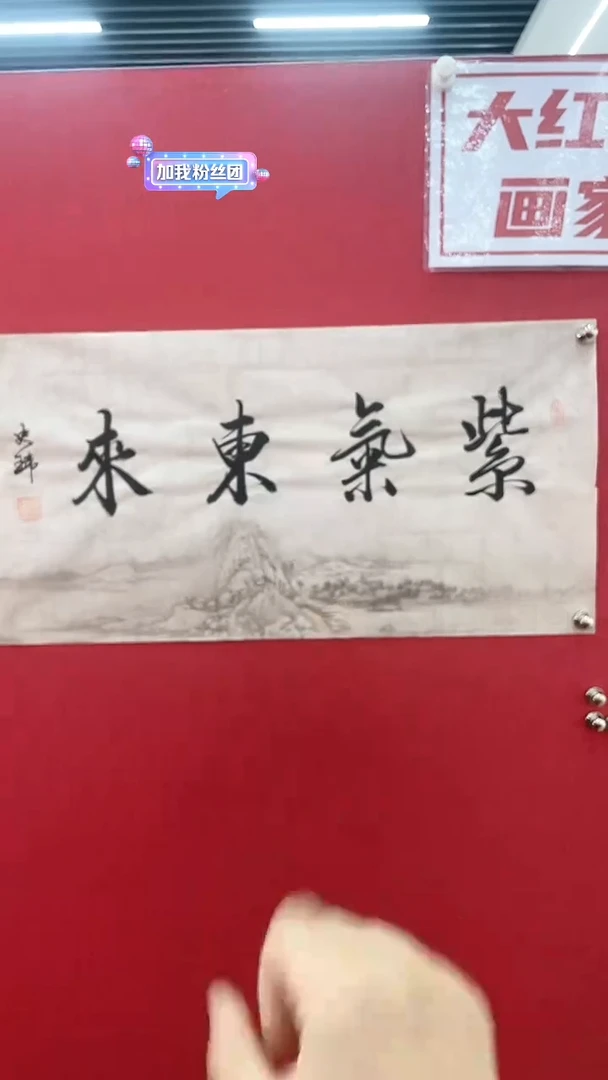 加我粉丝团
大红
画家
紫氣東來